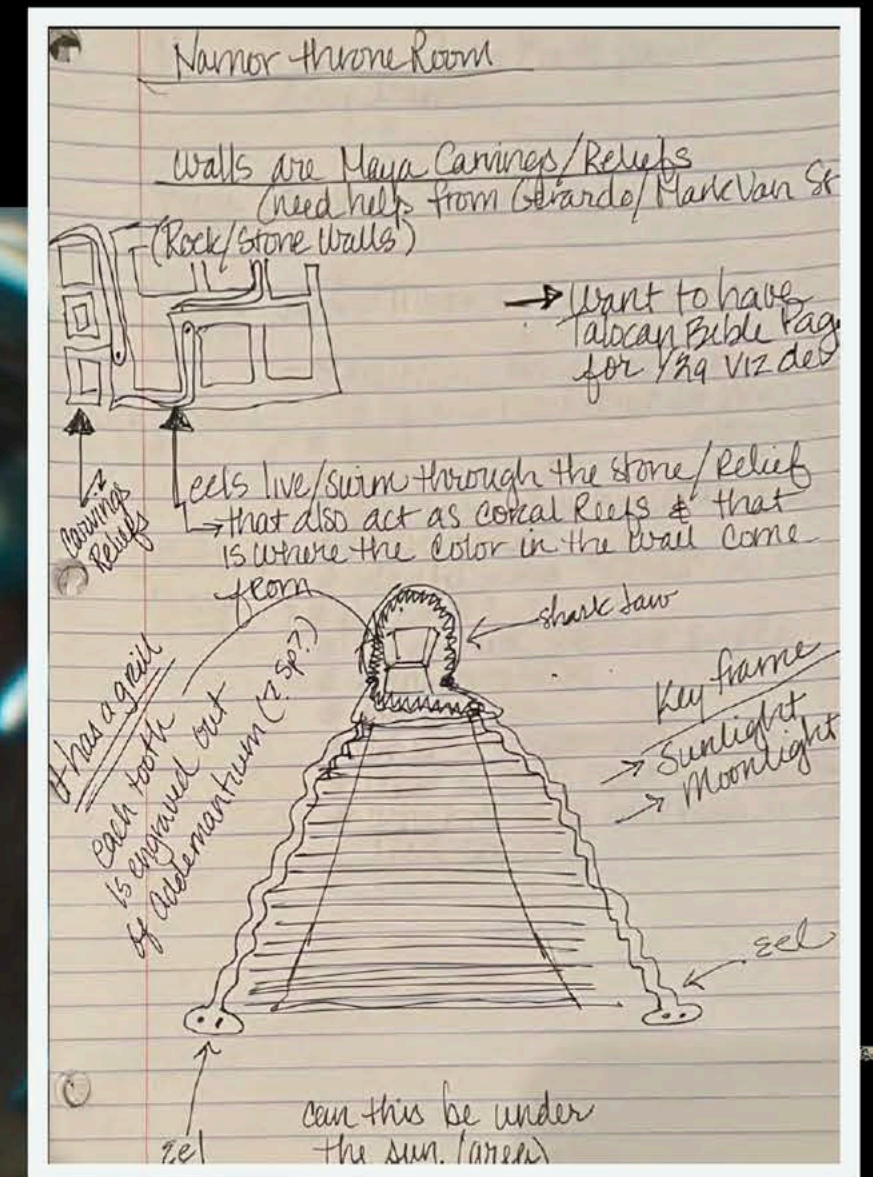 Namor throne Room
Walls are Maya Carvings/Reliefs
(need help from Gerardo/Mark Van St
(Rock/Stone Walls)
→ Want to have
Talocan Bible Pag
for 1/29 Viz dev
Carvings
Reliefs
eels live/swim through the stone/Relief
→ that also act as coral Reefs & that
is where the color in the wall come
from
shark Jaw
It has a grill
each tooth
is engraved out
of addemantium (? Sp?)
Key frame
→ Sunlight
→ Moonlight
Eel
Eel
can this be under
the sun. (area)